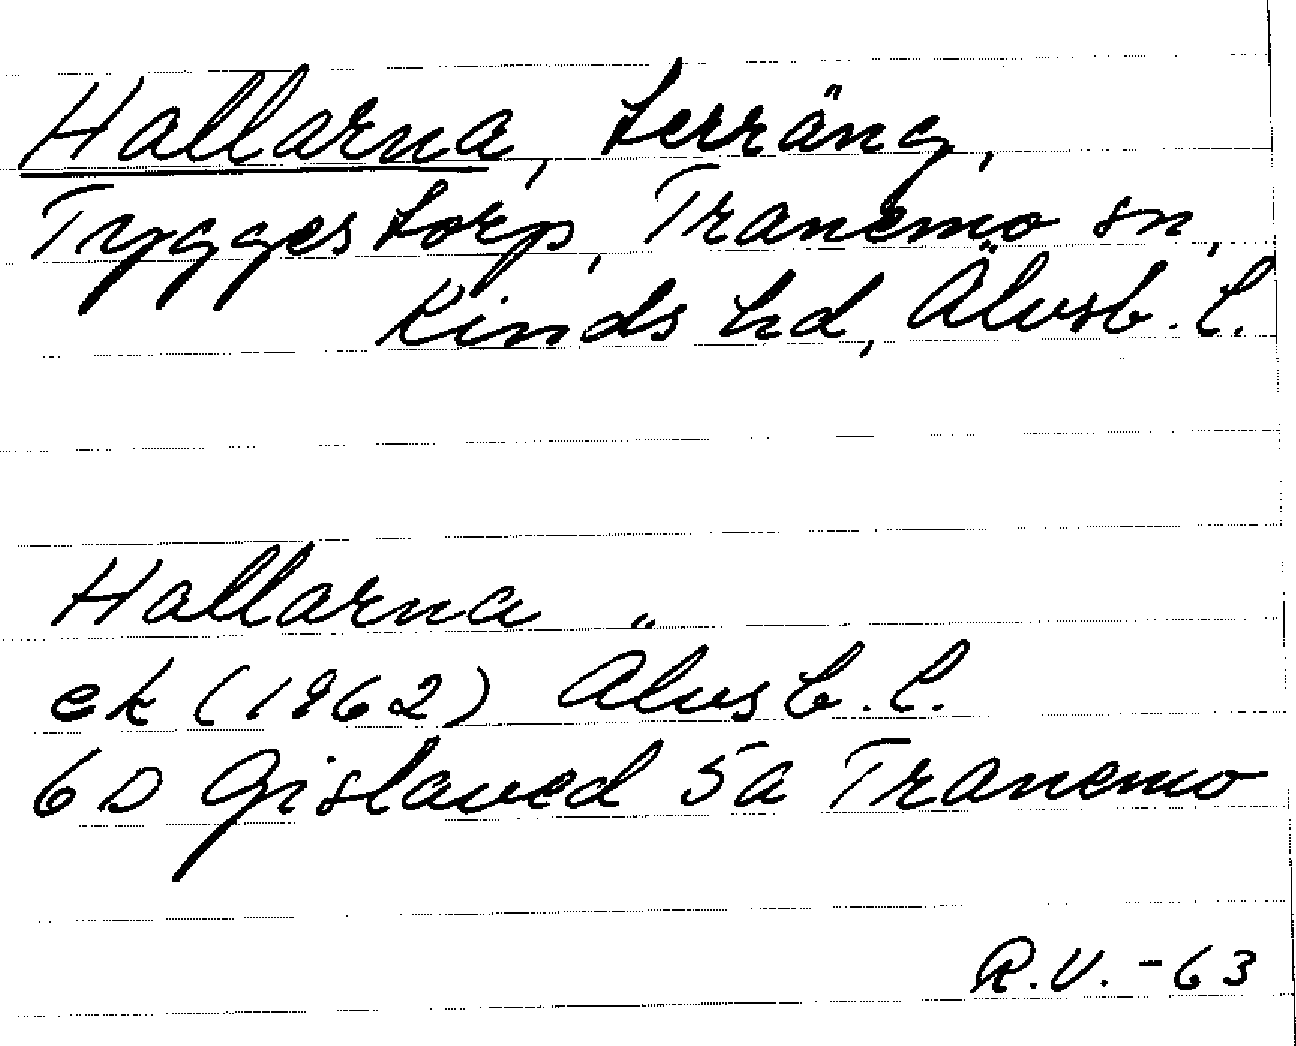 Hallarna, terräng,
Tryggestorp, Tranemo sn,
Kinds hd, Älvsb. l.
Hallarna
ek (1962) Älvsb. l.
6D Gislaved 5a Tranemo
R.V. -63